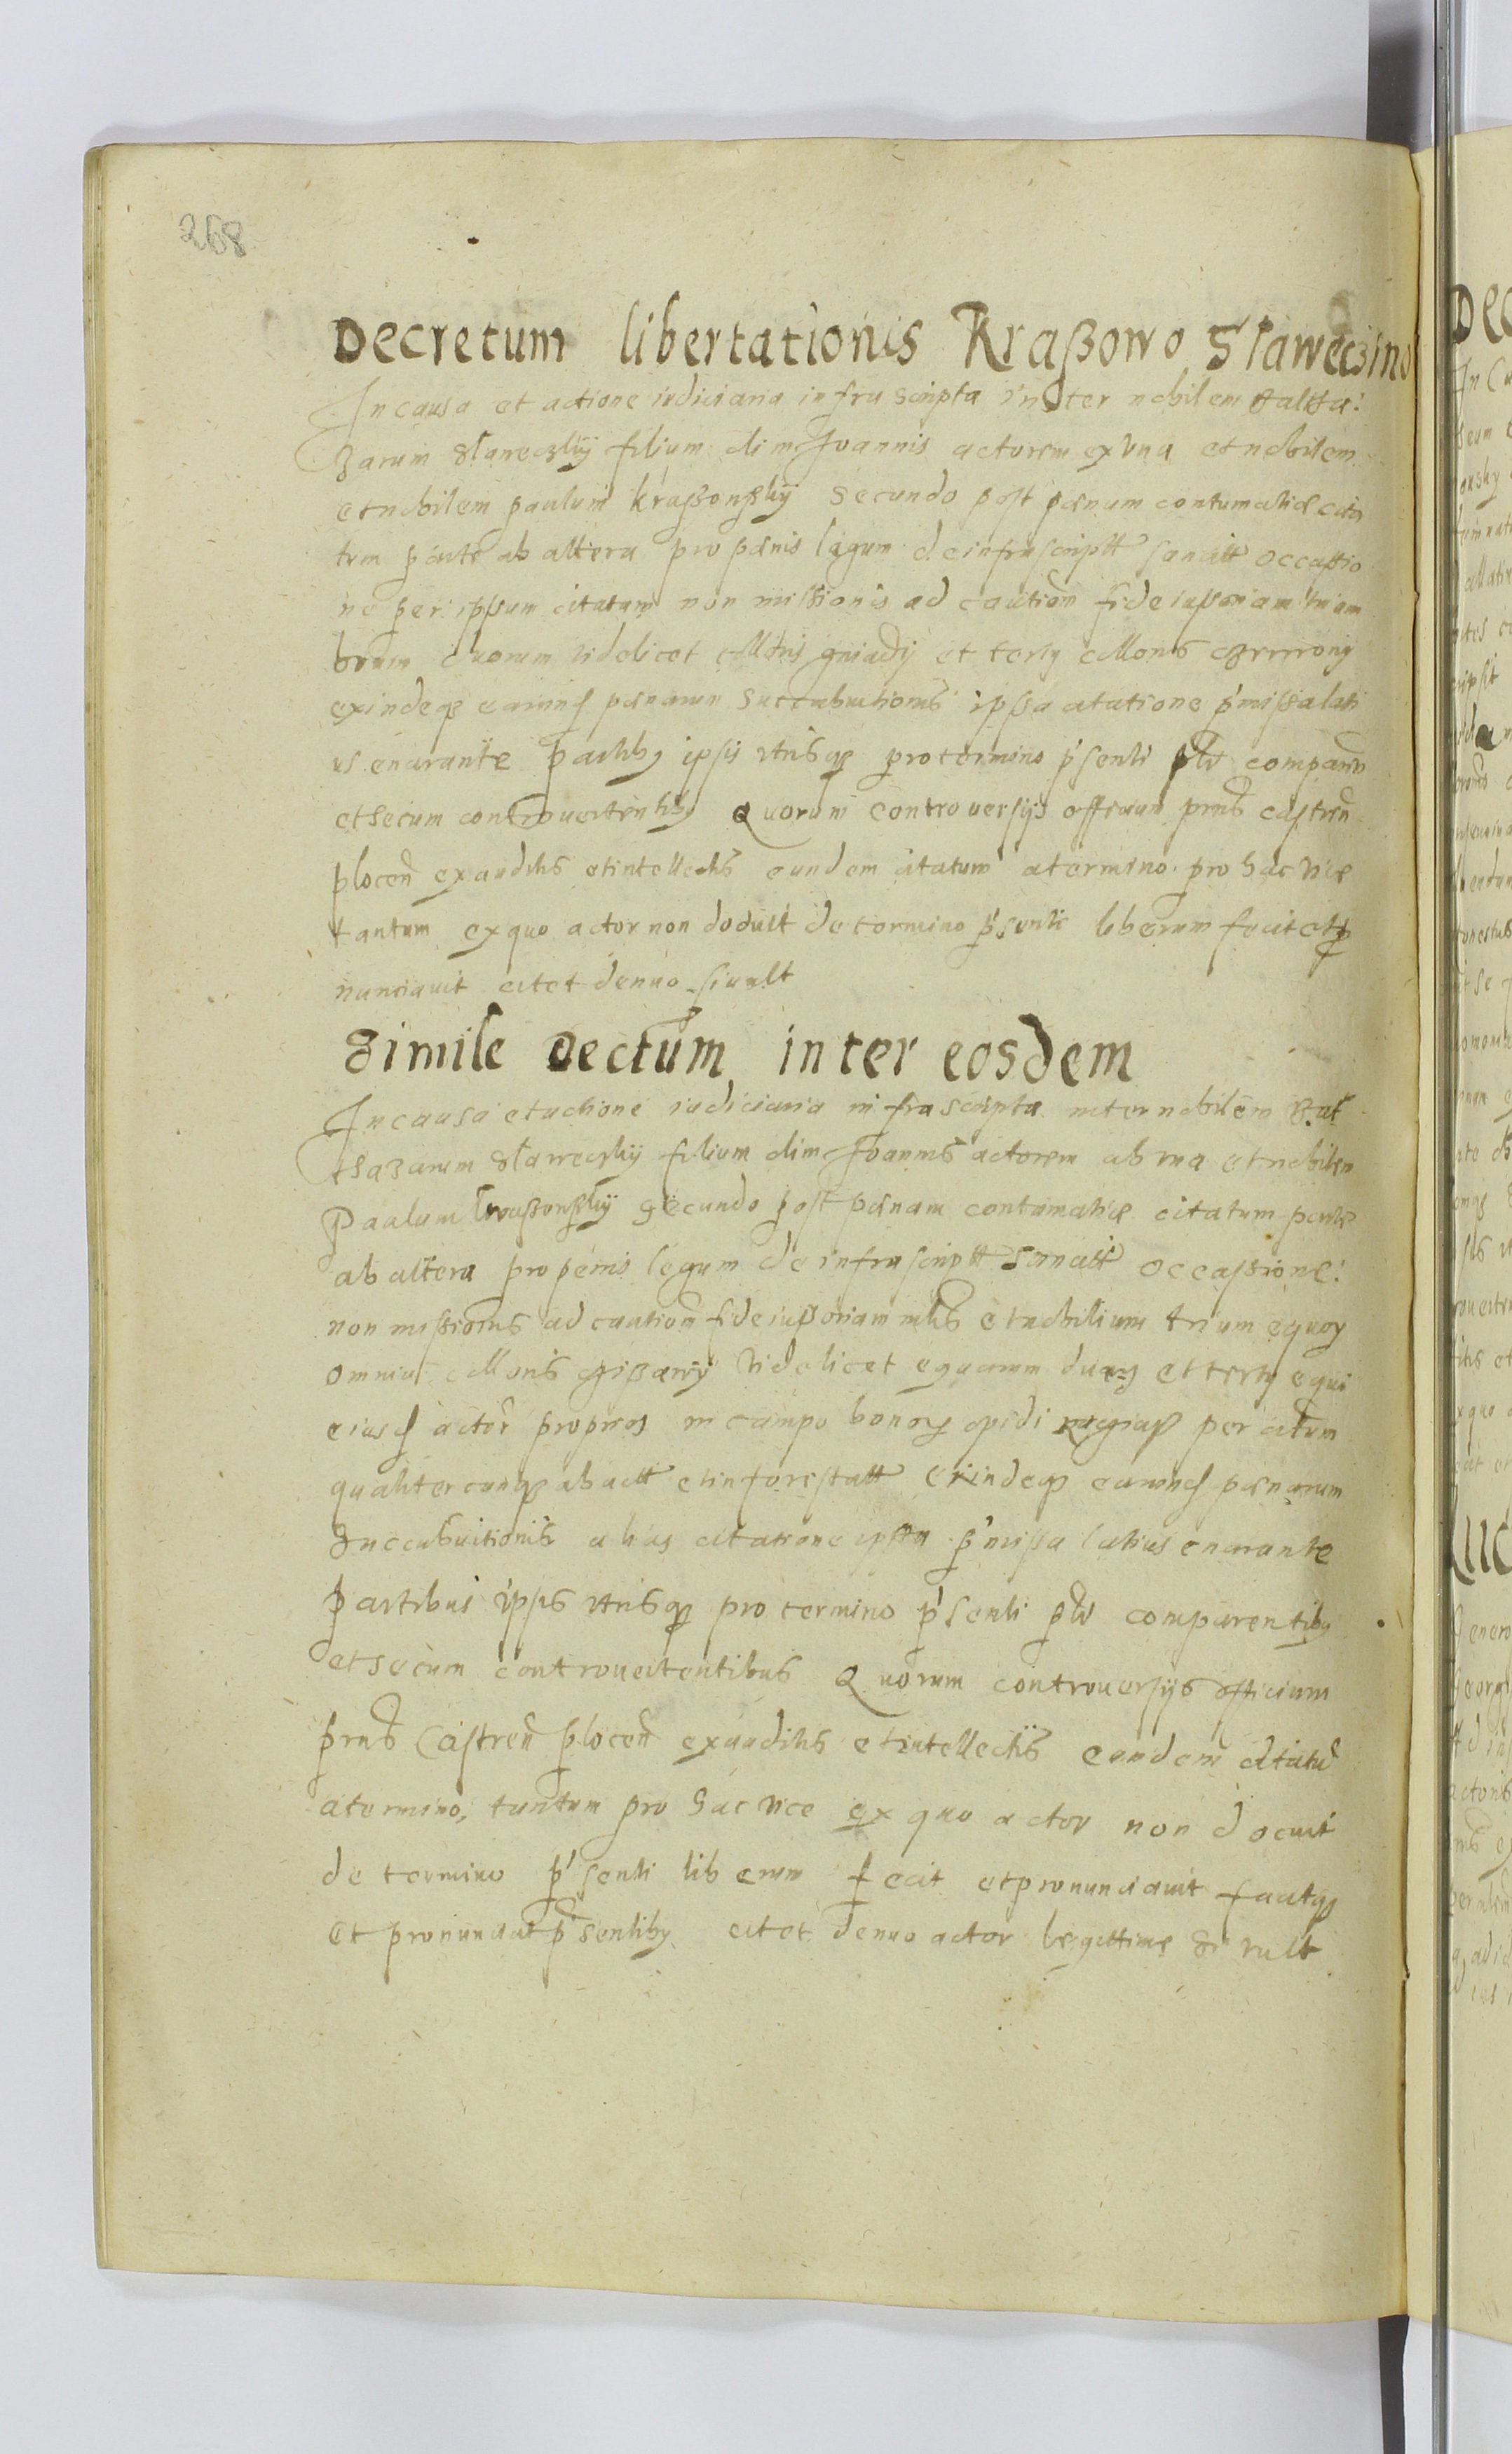 268
Decretum libertationis Kraßowo Slaweczino
In causa et actione iudiciaria infrascripta inter nobilem Balta:
zarum Slaweczkij filium olim Joannis actorem ex vna et nobilem
et nobilem paulum kraßowskij secundo post pænam contumatiæ cita
tum parte ab altera pro pænis legum de infrascriptt sancitt occassio
ne per ipsum citatum non missionis ad cautiom fideiussoriam
duorum videlicet gniadij et tertij
exindeqz earum pænarum succubuitionis ipsa citatione p'missa lati
us enarrante partibz ipsis vtrisqz pro termino p'senti comparen
et secum controuertentibz Quorum controuersijs officium prns castren
plocen exauditis et intellectis eundem citatum a termino pro hac vice
tantum ex quo actor non docuit de termino p'senti liberum fecit et p
nunciauit citet denuo si vult
Simile dectum inter eosdem
In causa et actione iudiciaria infrascripta inter nobilem Bal
thazarum Slaweczkij filium olim Joannis actorem ab vna et nobilem
Paulum kraßowskij secundo post pænam contumatiæ citatum parte
ab altera pro penis legum de infrascriptt sancitt occassione:
non missionis ad cautiom fideiussoriam nobilium trium equoz
omnium videlicet equarum duarz et tertij equi
eiusd actor proprios in campo bonoz opidi per citatum
qualitercunqz abactt et inforistatt exindeqz earum pænarum
succubuitionis alias citatione ipsa p'missa latius enarrante
partibus ipsis vtrisqz pro termino p'senti comparentibz
et secum controuertentibus Quorum controuersijs officium
prns Castren plocen exauditis et intellectis eundem citatu
a termino, tantum pro hac vice ex quo actor non docuit
de termino p'senti liberum fecit et pronunciauit facitqz
et pronunciat p'sentibz citet denuo actor legittime si vult